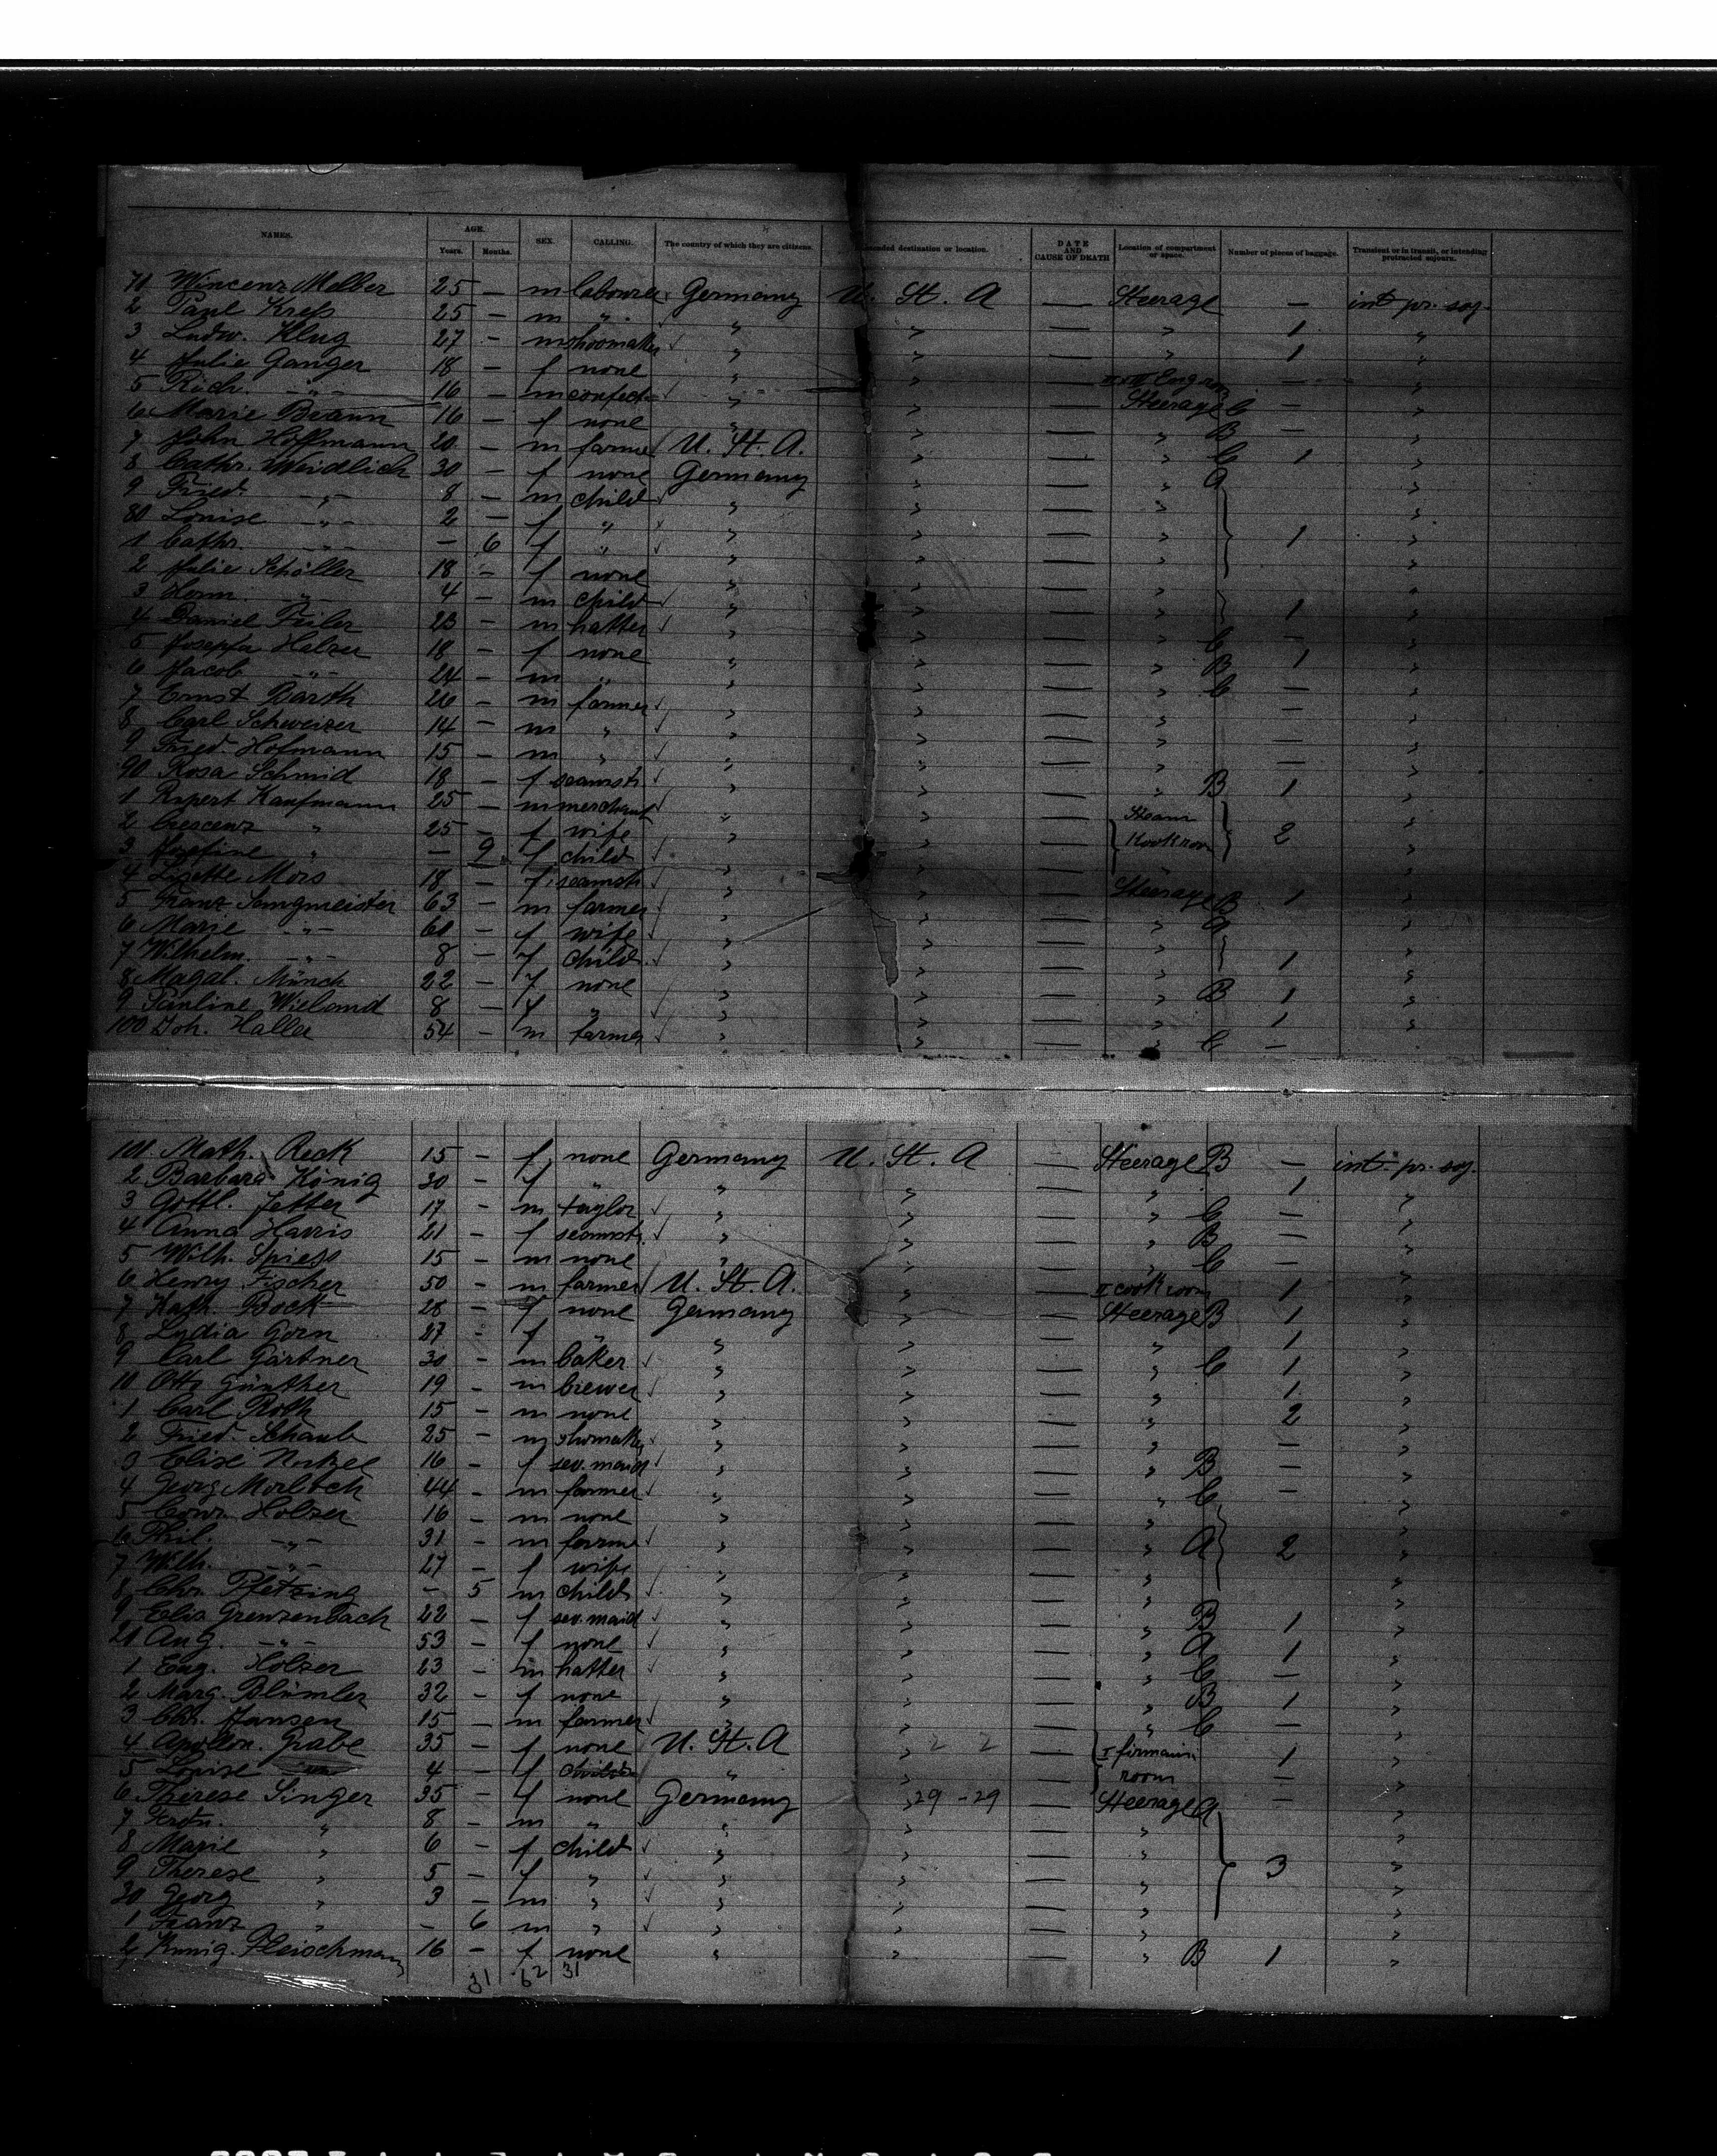 NAMES. AGE. Years. Months. SEX. CALLING. The country of which they are citizens. Intended destination or location. DATE AND CAUSE OF DEATH Location of compartment or space. Number of pieces of baggage. Transient or in transit, or intending protracted sojourn.
71 Wincenz Melber 25 — m labourer Germany U. St. A — Steerage — int pr. soj.
2 Paul Kreß 25 — m " " " — " 1 "
3 Ludw. Klug 27 — m shoomaker " " — " 1 "
4 Julie Ganger 18 — f none " " — —
5 Rich. -"- 16 — m confect " " — Steerage C — "
6 Marie Braun 16 — f none " " — " B — "
7 John Hoffmann 20 — m farmer U. St. A. " — " C 1 "
8 Cathr. Weidlich 30 — f none Germany " — " A "
9 Fried. -"- 8 — m child " " — " "
80 Louise -"- 2 — f " " " — " 1 "
1 Cathr. -"- — 6 f " " " — " "
2 Julie Schöller 18 — f none " " — " "
3 Herm. -"- 4 — m child " " — " 1 "
4 Daniel Feiler 23 — m hatter " " — " C — "
5 Josepha Helzer 18 — f none " " — " B 1 "
6 Jacob -"- 24 — m " " " — " C — "
7 Ernst Barth 26 — m farmer " " — " — "
8 Carl Schweizer 14 — m " " " — " — "
9 Fried. Hofmann 15 — m " " " — " — "
90 Rosa Schmid 18 — f seamstr. " " — " B 1 "
1 Rupert Kaufmann 25 — m merchant " " — Steam "
2 Crescenz " 25 — f wife " " — Kookroom 2 "
3 Josefine " — 9 f child " " — "
4 Lisette Mors 18 — f seamstr " " — Steerage B 1 "
5 Franz Samgmeister 63 — m farmer " " — " A "
6 Marie -"- 61 — f wife " " — " "
7 Wilhelm. -"- 8 — f child " " — " 1 "
8 Magdl. Münch 22 — f none " " — " B 1 "
9 Pauline Wieland 8 — f " " " — " 1 "
100 Joh. Haller 54 — m farmer " " — " C —
101. Math. Reck 15 — f none Germany U. St. A — Steerage B — int pr. soj.
2 Barbara König 30 — f " " " — " 1 "
3 Gottl. Jetter 17 — m taylor " " — " C — "
4 Anna Harris 21 — f seamstr. " " — " B — "
5 Wilh. Spiess 15 — m none " " — " C — "
6 Henry Fischer 50 — m farmer U. St. A. " — II cook room 1 "
7 Kath. Bock 28 — f none Germany — Steerage B 1 "
8 Lydia Gorn 27 — f " " " — " 1 "
9 Carl Gärtner 30 — m baker " " — " C 1 "
10 Otto Günther 19 — m brewer " " — " 1 "
1 Carl Roth 15 — m none " " — " 2 "
2 Fried. Schaub 25 — m shomaker " " — " — "
3 Elise 16 — f sev. maid " " — " B — "
4 Georg Morlock 44 — m farmer " " — " C — "
5 Conr. Holzer 16 — m none " " — " "
6 Phil. -"- 31 — m farmer " " — " A 2 "
7 Wilh. -"- 27 — f wife " " — " "
8 Chr. Pfetzing — 5 m child " " — " "
9 Elis. Grenzenbach 22 — f sev. maid " " — " B 1 "
20 Aug. -"- 53 — f none " " — " A 1 "
1 Eug. Holzer 23 — m hatter " " — " C — "
2 Marg. Blümler 32 — f none " " — " B 1 "
3 Chr. Jansen 15 — m farmer " " — " C — "
4 Apollon. Grabe 35 — f none U. St. A " 2 2 — I firmain 1 "
5 Louise 4 — f child " " — room — "
6 Therese Singer 35 — f none Germany " 29 - 29 — Steerage A — "
7 " 8 — m " " " — " "
8 Marie " 6 — f child " " — " "
9 Therese " 5 — f " " " — " 3 "
30 Georg " 3 — m " " " — " "
1 Franz " — 6 m " " " — " "
2 Kunig. Fleischmann 16 — f none " " — " B 1 "
31 62 31